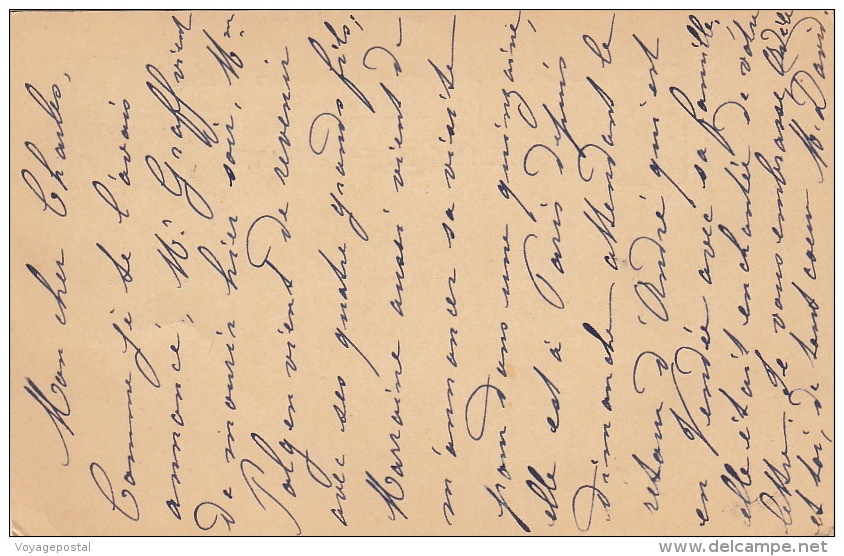 Mon cher Charles,
Comme je te l'avais
annoncé, Mr Graffvient
de mourir hier soir, Mme
Polgen vient de revenir
avec ses quatre grands fils,
Marraine aussi vient de
m'annoncer sa visite
pour dans une quinzaine,
elle est à Paris depuis
dimanche attendant le
retour d'André qui est
en Vendée avec sa famille,
elle était enchantée de votre
lettre. Je vous embrasse Adèle
et toi, de tout coeur M. David.
Voyagepostal
delcampe.net